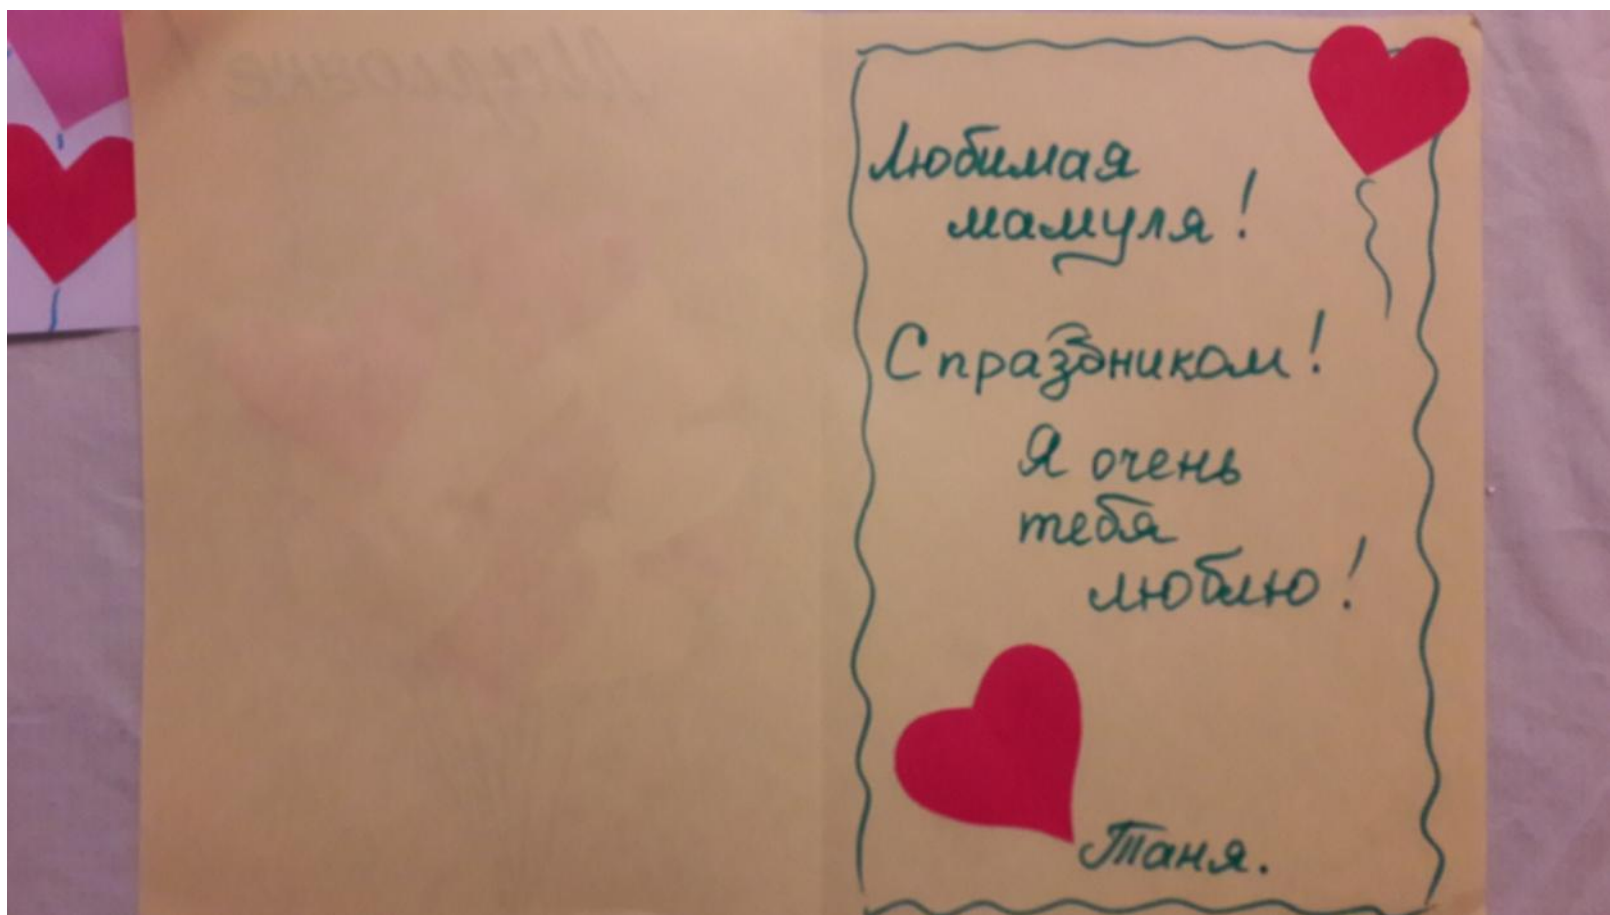 Любимая
мамуля!
С праздником!
Я очень
тебя
люблю!
Таня.